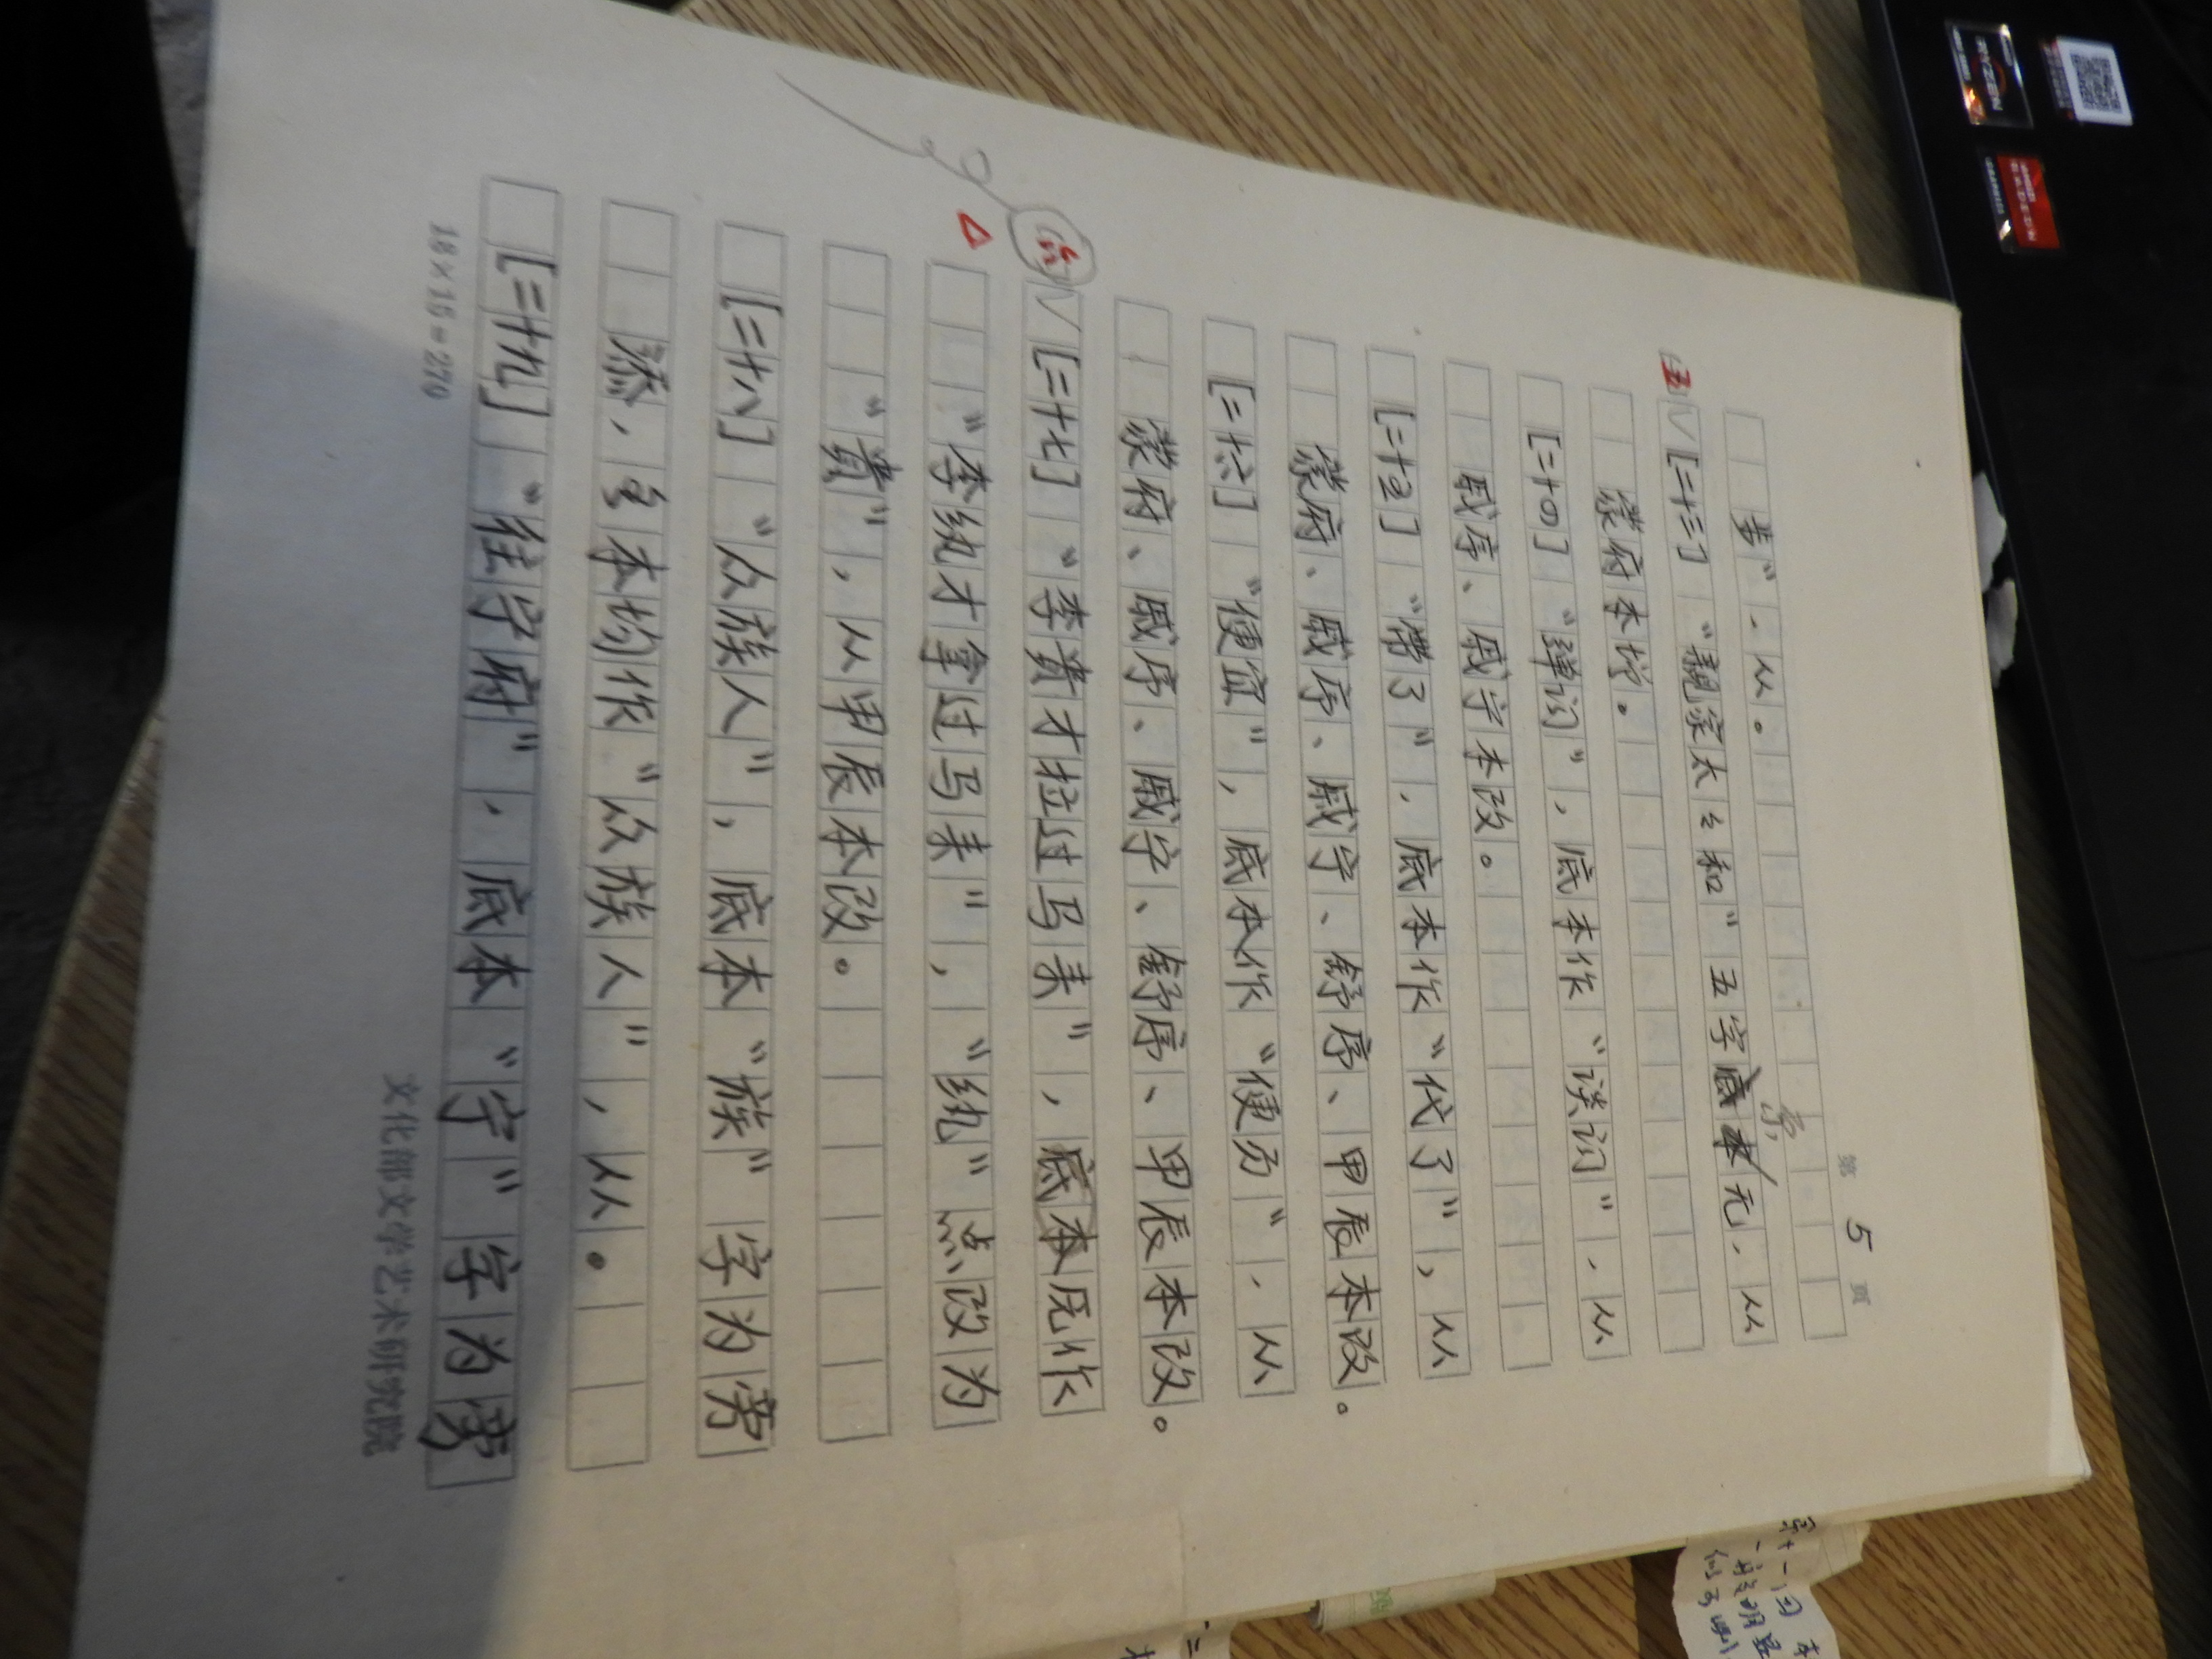 第 5 页
事”，从。
原
五 [二十三] “親家太太和”五字底本无，从
蒙府本增。
[二十四] “弹词”，底本作“谈词”，从
戚序、戚宁本改。
[二十五] “带了”，底本作“代了”，从
蒙府、戚序、戚宁、舒序、甲辰本改。
[二十六] “便宜”，底本作“便易”，从
蒙府、戚序、戚宁、舒序、甲辰本改。
六 [二十七] “李贵才拉过马来”，底本原作
△ “李纨才拿过马来”，“纨”点改为
“贵”，从甲辰本改。
[二十八] “众族人”，底本“族”字为旁
添，各本均作“众族人”，从。
[二十九] “往宁府”，底本“宁”字为旁
18×15=270
文化部文学艺术研究院
RYZEN
AMD
RADEON
第十一回